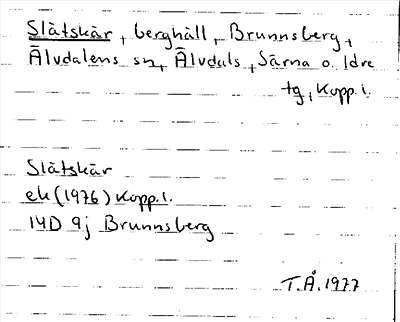 Slätskär, berghäll, Brunnsberg,
Älvdalens sn, Älvdals, Särna o. Idre
tg, Kopp. l.
Slätskär
ek (1976) Kopp. l.
14D 9j Brunnsberg
T.Å. 1977